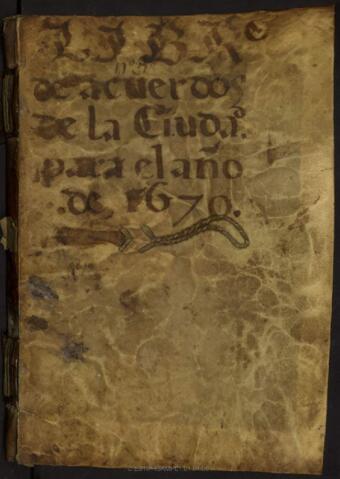 LIBRᵉ
de acuerdos
de la Ciudaᵈ.
para el año
de, 1670.